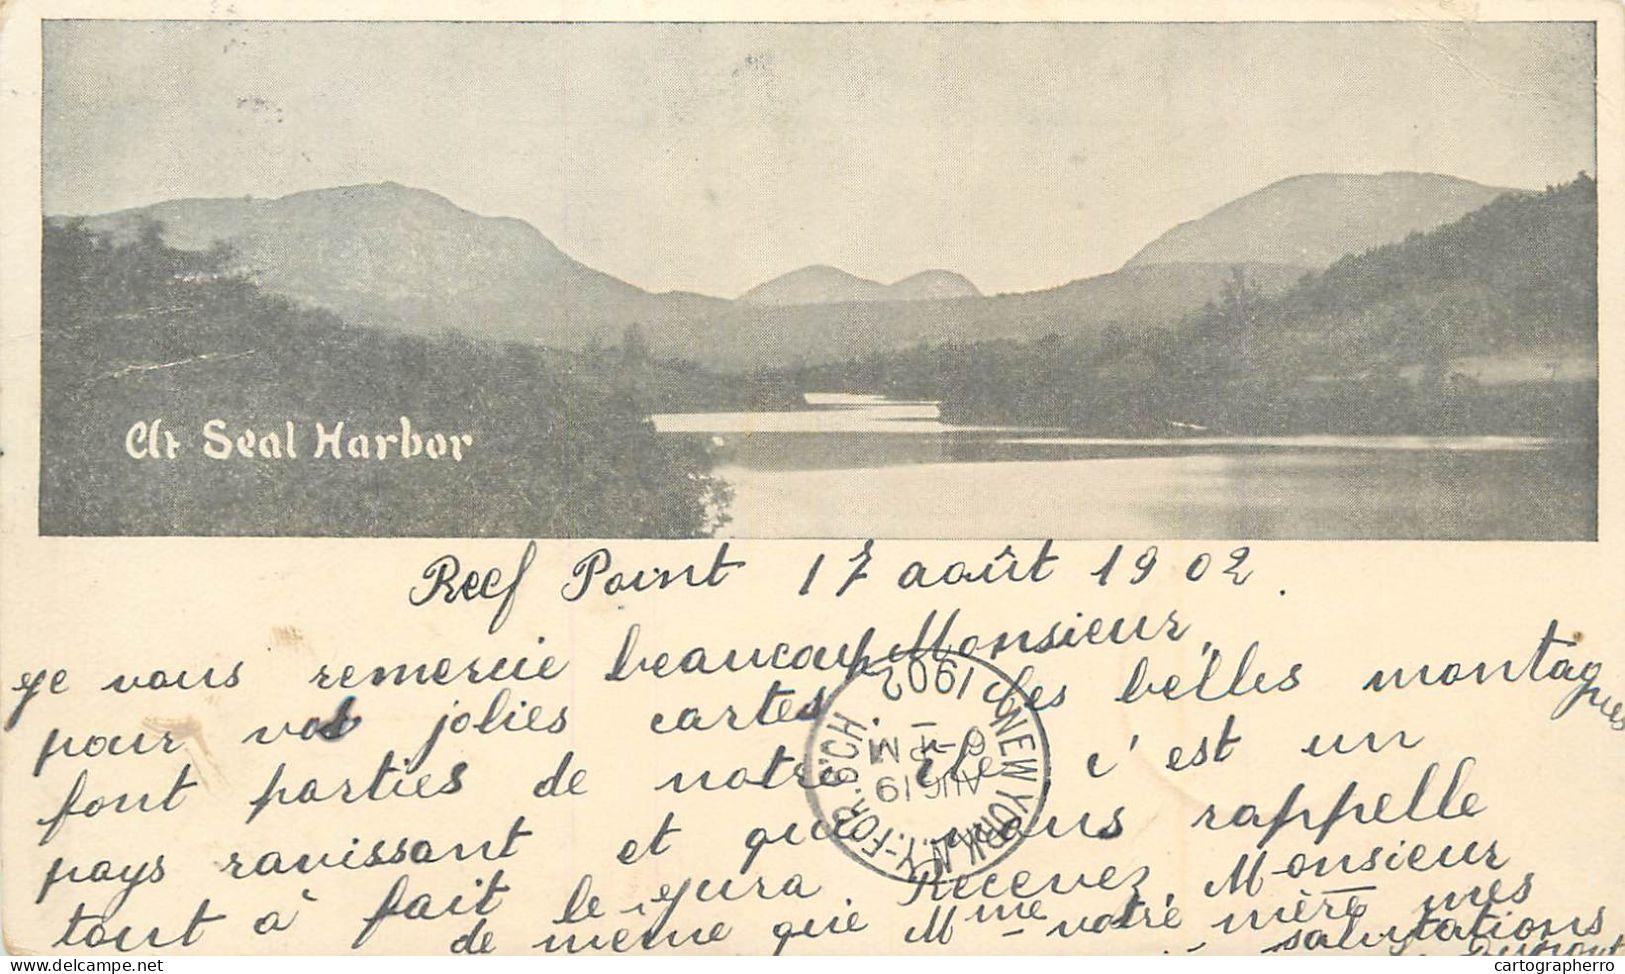 At Seal Harbor
Reef Point 17 août 1902.
Monsieur,
je vous remercie beaucoup
pour vos jolies cartes, les belles montagnes
font parties de notre île, c'est un
pays ravissant et qui vous rappelle
tout à fait le jura. Recevez, Monsieur
de même que Mme votre mère mes
salutations
NEW YORK, N.Y.-FOR. B'CH.
AUG 19
6-PM
1902
delcampe.net
cartographerro